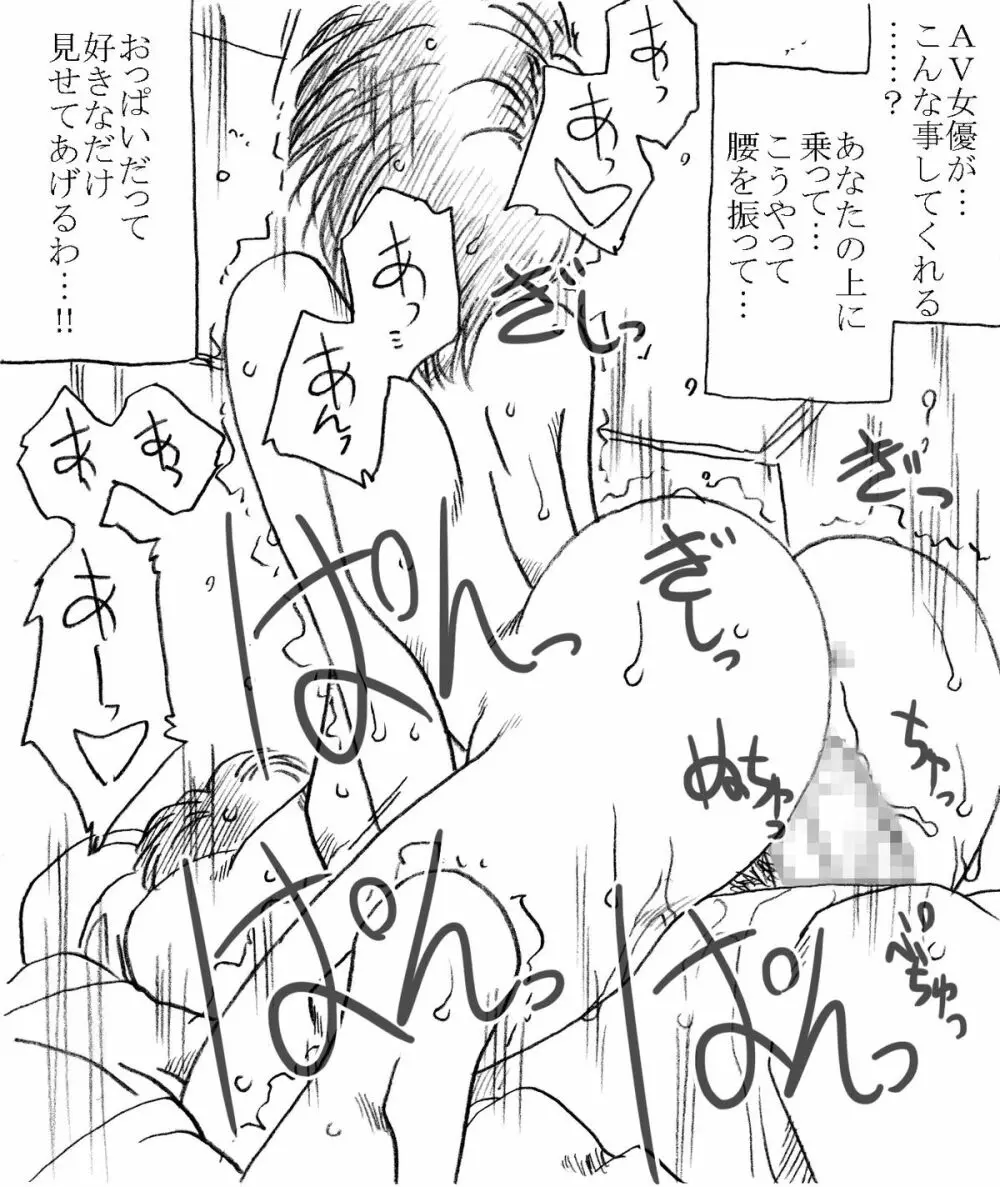 AV女優が…
こんな事してくれる
……?
あなたの上に
乗って…
こうやって
腰を振って…
おっぱいだって
好きなだけ
見せてあげるわ…!!
あっ
あっ
あっ
あんっ
ぎしっ
ぎっ
ぎしっ
あぁっ
あぁ
あーっ
ぱんっ
ちゅっ
ぬちゅっ
ぱんっ
ぱんっ